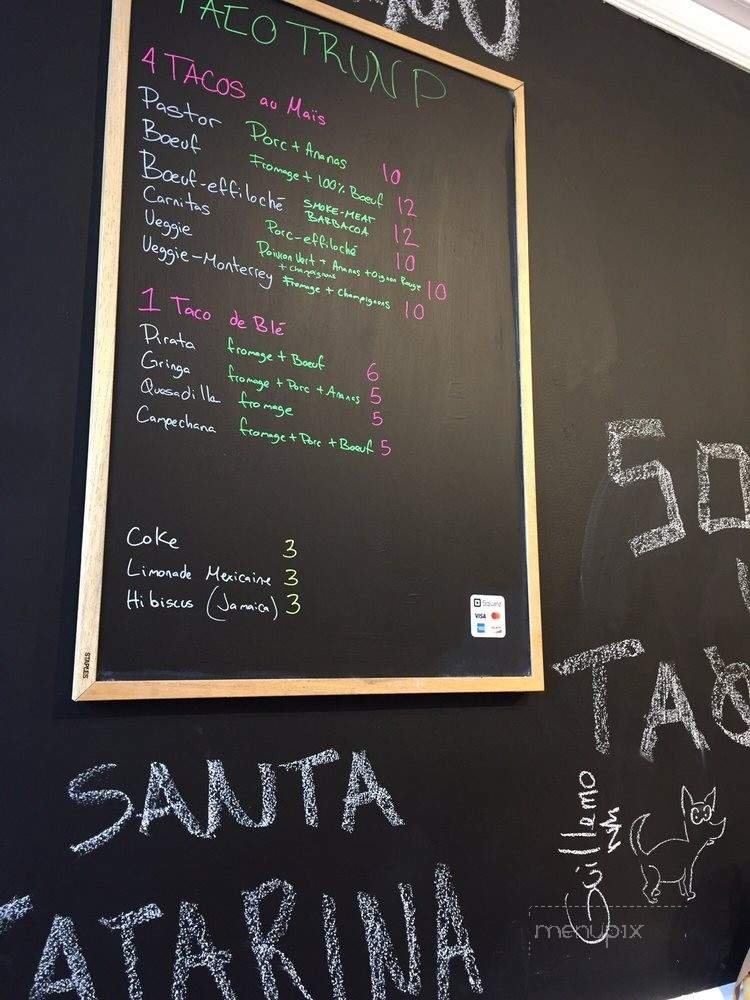 TACO TRUNP
4 TACOS ao Maïs
Pastor Porc + Ananas 10
Boeuf Fromage + 100% Boeuf 12
Boeuf-effiloché SMOKE-MEAT BARBACOA 12
Carnitas Porc-effiloché 10
Veggie Poivron Vert + Ananas + Oignon Rouge + champignons 10
Veggie-Monterrey Fromage + Champignons 10
1 Taco de Blé
Pirata fromage + Boeuf 6
Gringa fromage + Porc + Ananas 5
Quesadilla fromage 5
Campechana fromage + Porc + Boeuf 5
Coke 3
Limonade Mexicaine 3
Hibiscus (Jamaica) 3
Square
VISA
STAPLES
SANTA
CATARINA
SO
TACO
Guillermo
menupix